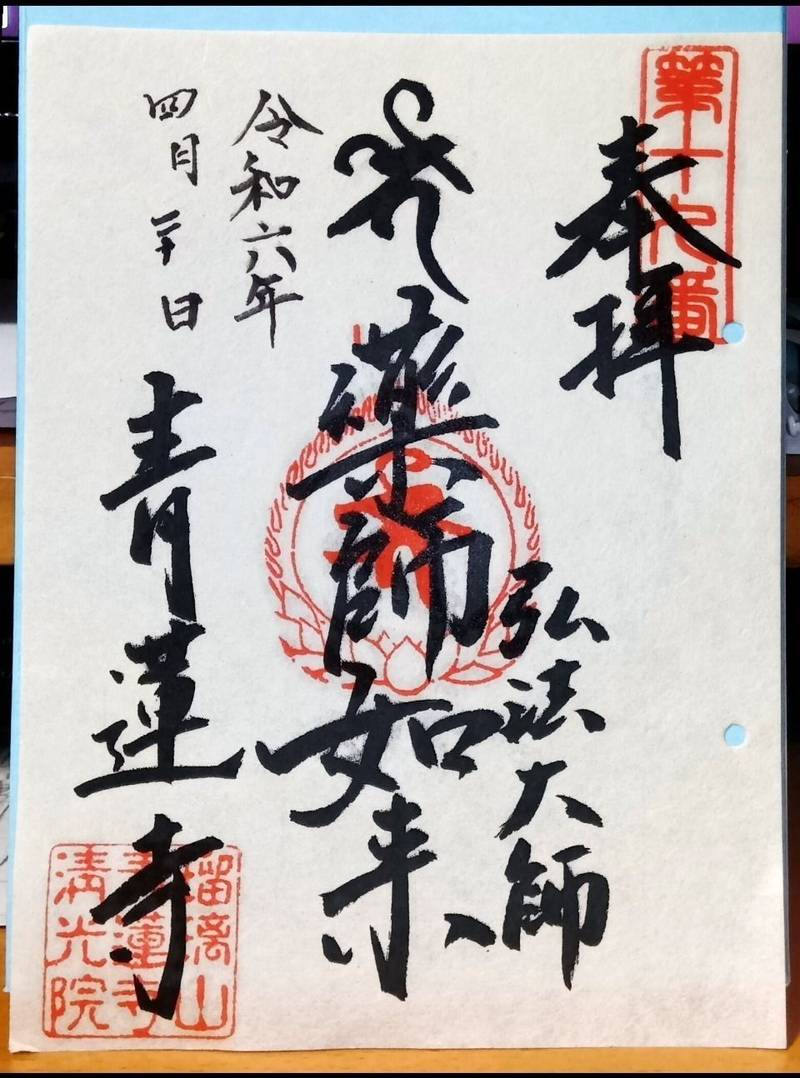 第十九番
奉拝
弘法大師
藥師如来
令和六年
四月二十日
青蓮寺
瑠璃山
青蓮寺
清光院